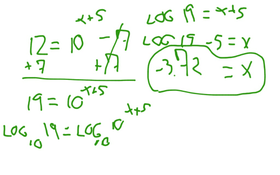 12 = 10^(x+5) - 7
+7 +7
19 = 10^(x+5)
LOG₁₀ 19 = LOG₁₀ 10^(x+5)
LOG 19 = x+5
LOG 19 - 5 = x
-3.72 = x